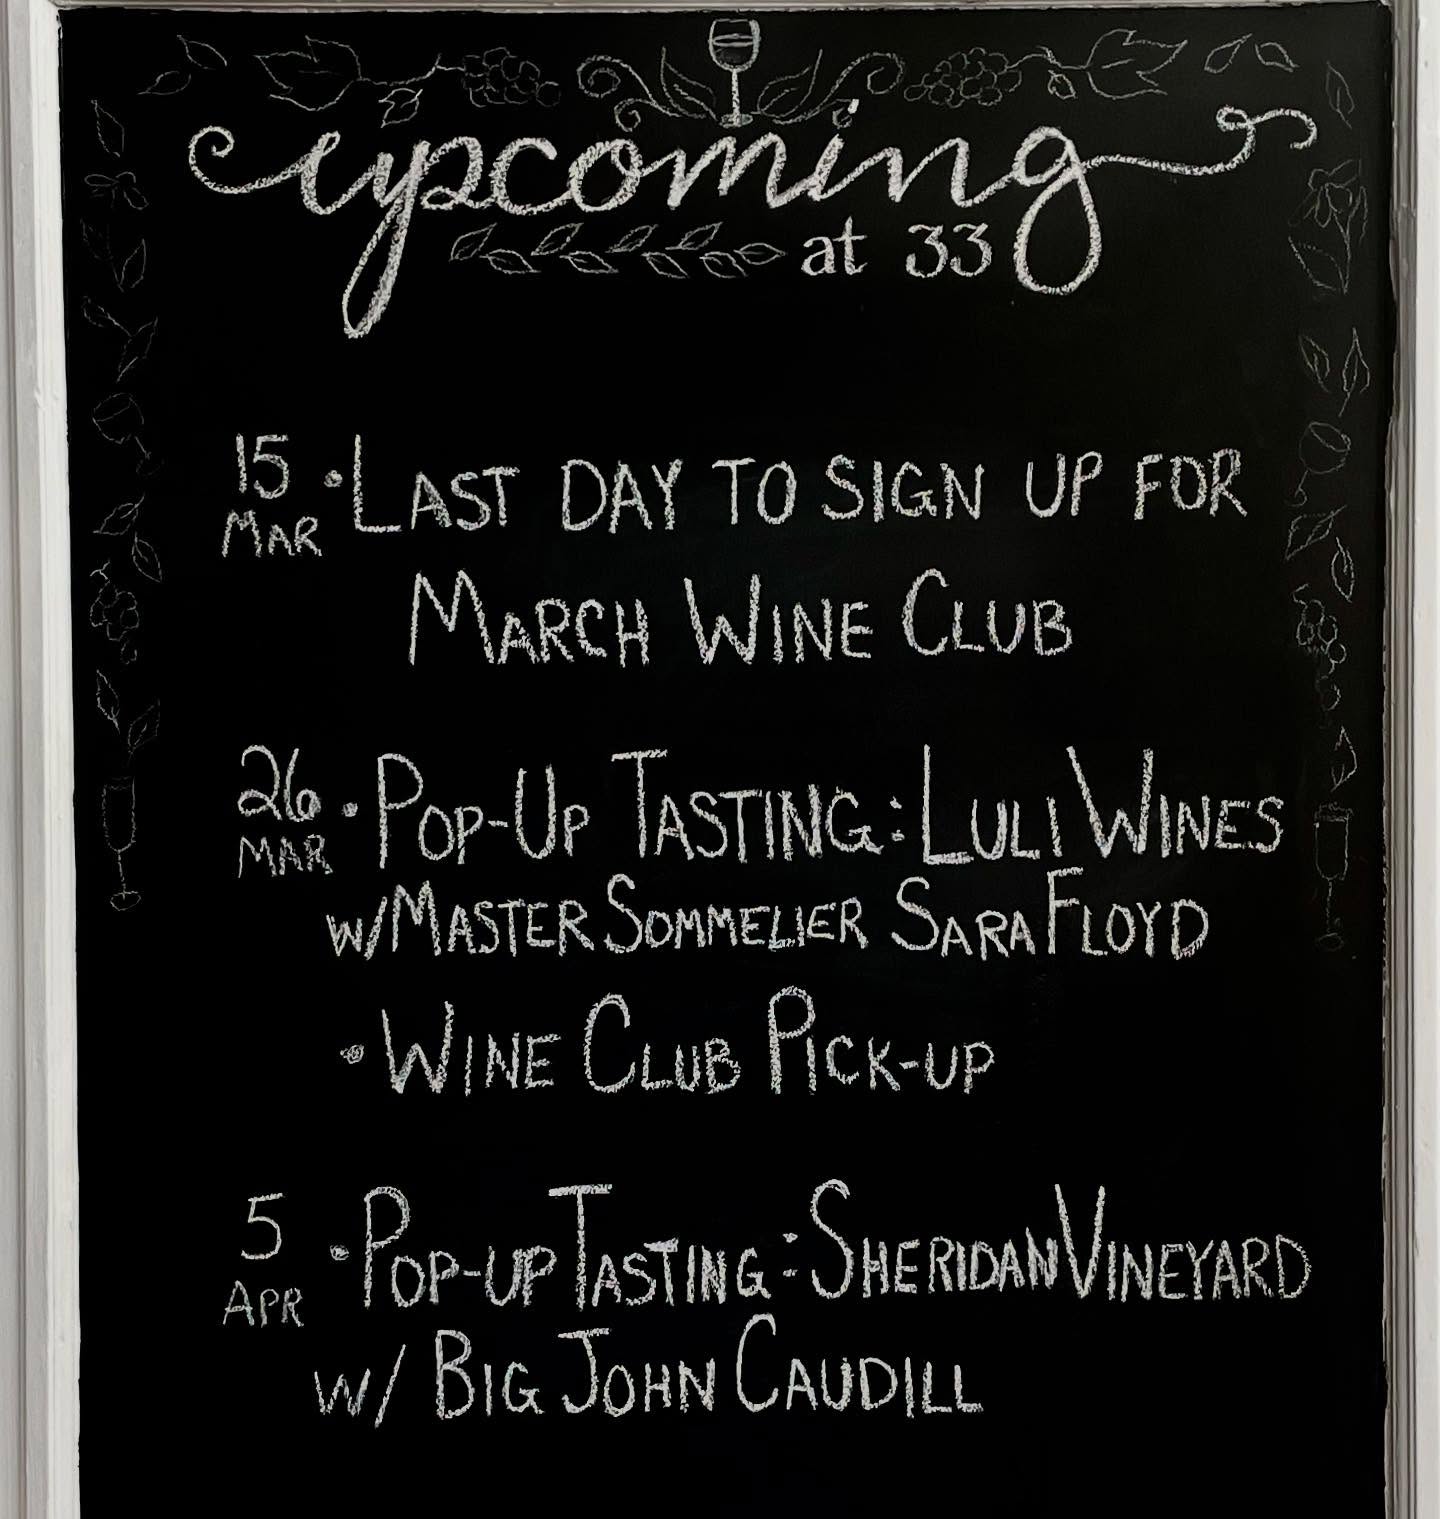 upcoming
at 33
15 MAR • LAST DAY TO SIGN UP FOR
MARCH WINE CLUB
26 MAR • POP-UP TASTING: LULI WINES
W/ MASTER SOMMELIER SARA FLOYD
• WINE CLUB PICK-UP
5 APR • POP-UP TASTING: SHERIDAN VINEYARD
W/ BIG JOHN CAUDILL